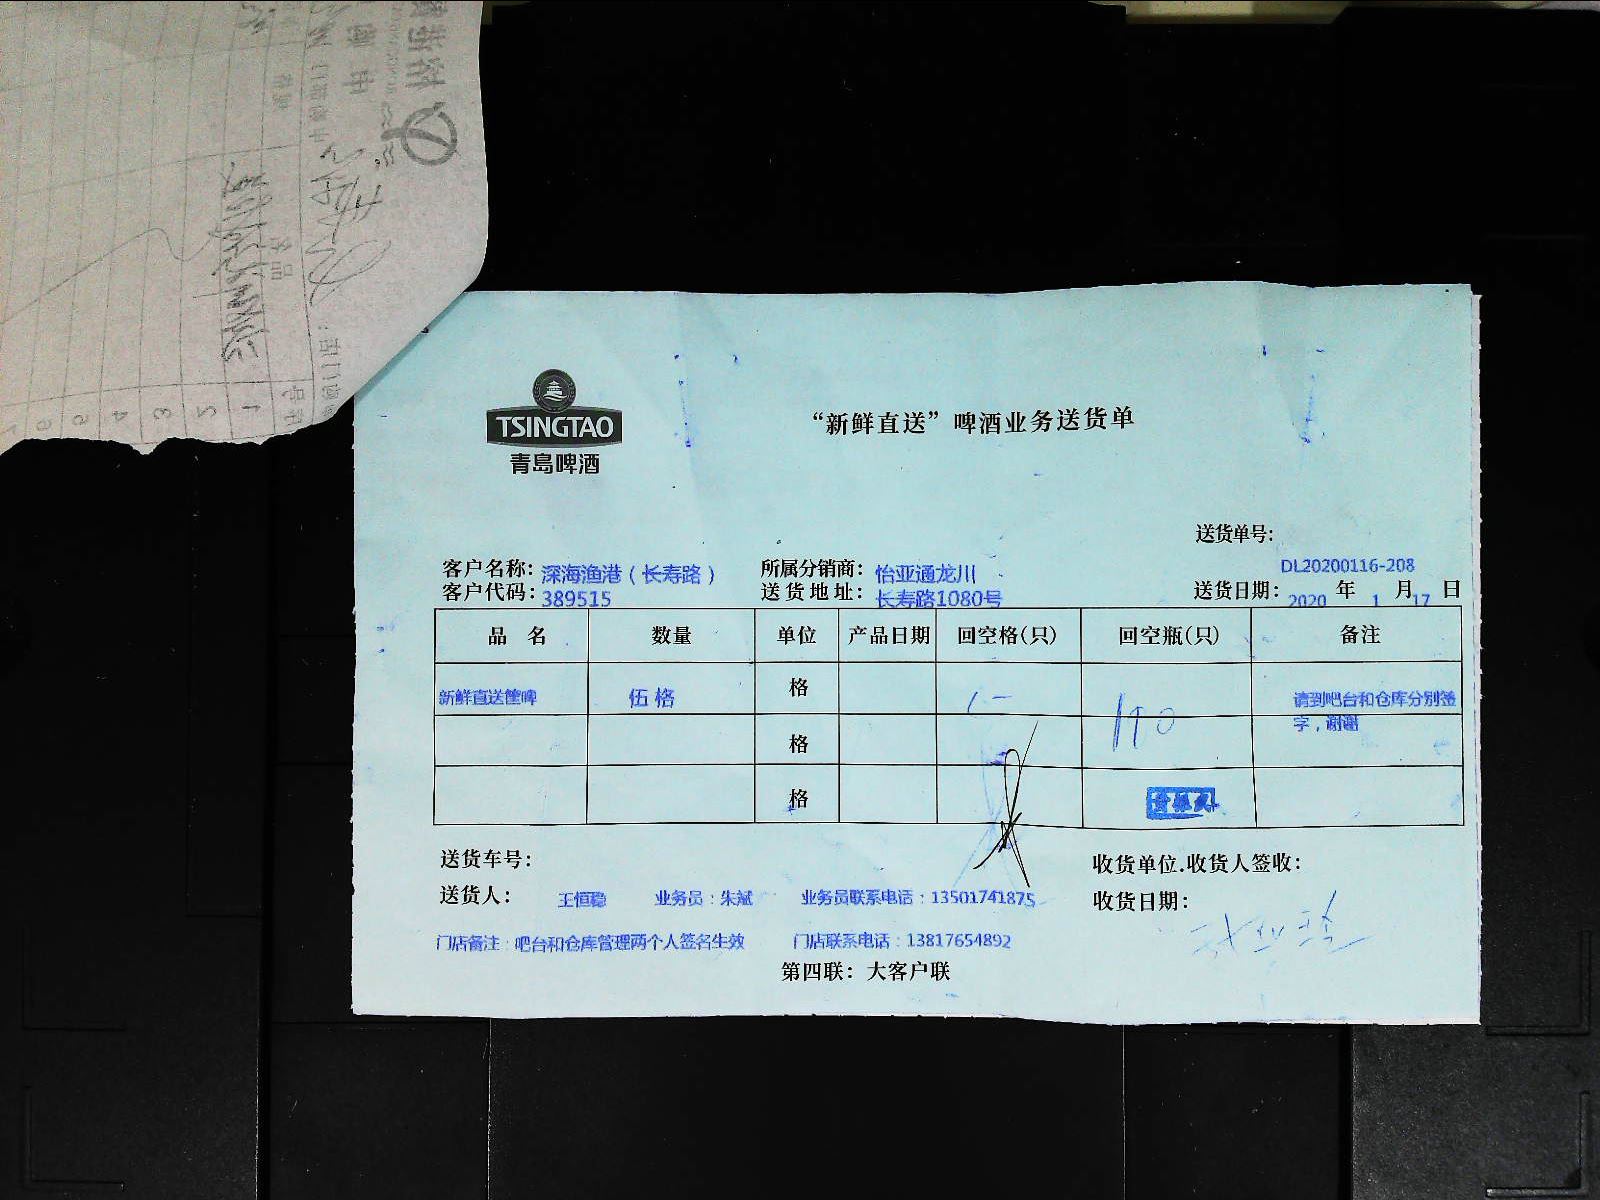 TSINGTAO
青岛啤酒
“新鲜直送”啤酒业务送货单
送货单号：
DL20200116-208
客户名称：深海渔港（长寿路） 所属分销商：怡亚通龙川
客户代码：389515 送货地址：长寿路1080号 送货日期：2020 年 1 月 17 日
品 名 数量 单位 产品日期 回空格(只) 回空瓶(只) 备注
新鲜直送筐啤 伍格 格 请到吧台和仓库分别签字，谢谢
格
格
送货车号： 收货单位.收货人签收：
送货人： 王恒稳 业务员：朱斌 业务员联系电话：13501741875 收货日期：
门店备注：吧台和仓库管理两个人签名生效 门店联系电话：13817654892
第四联：大客户联